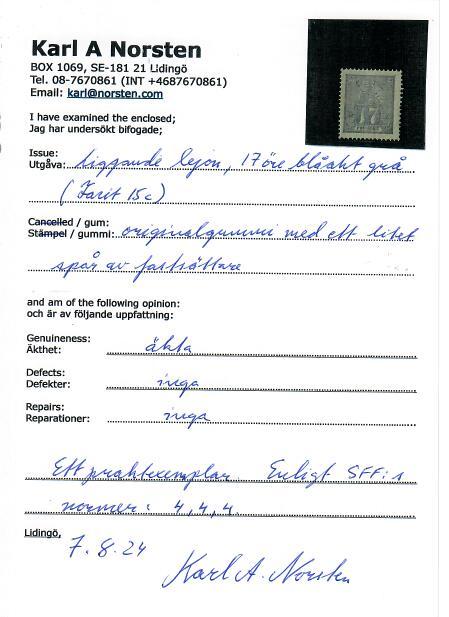 Karl A Norsten
BOX 1069, SE-181 21 Lidingö
Tel. 08-7670861 (INT +4687670861)
Email: karl@norsten.com
I have examined the enclosed;
Jag har undersökt bifogade;
Issue:
Utgåva: Liggande lejon, 17 öre blåakt grå
(Facit 15c)
Cancelled / gum:
Stämpel / gummi: originalgummi med ett litet
spår av fastsättare
and am of the following opinion:
och är av följande uppfattning:
Genuineness:
Äkthet: äkta
Defects:
Defekter: inga
Repairs:
Reparationer: inga
Ett praktexemplar Enligt SFF:s
normer: 4, 4, 4.
Lidingö,
7. 8. 24
Karl A. Norsten